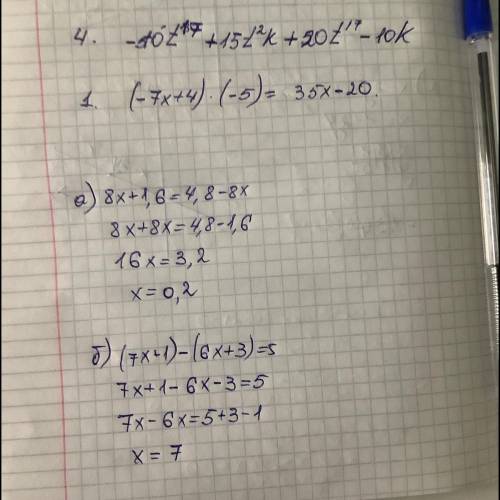 4. -10t¹⁷ + 15t²k + 20t¹⁷ - 10k
1. (-7x+4) · (-5) = 35x - 20.
а) 8x + 1,6 = 4,8 - 8x
8x + 8x = 4,8 - 1,6
16x = 3,2
x = 0,2
б) (7x+1) - (6x+3) = 5
7x + 1 - 6x - 3 = 5
7x - 6x = 5 + 3 - 1
x = 7